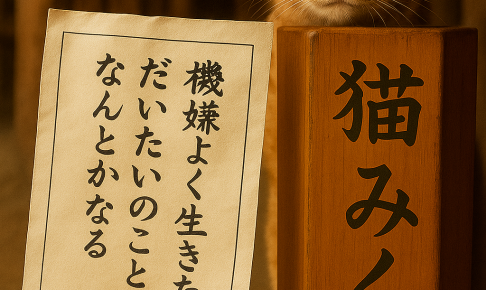 機嫌よく生きた
だいたいのこと
なんとかなる
猫みく